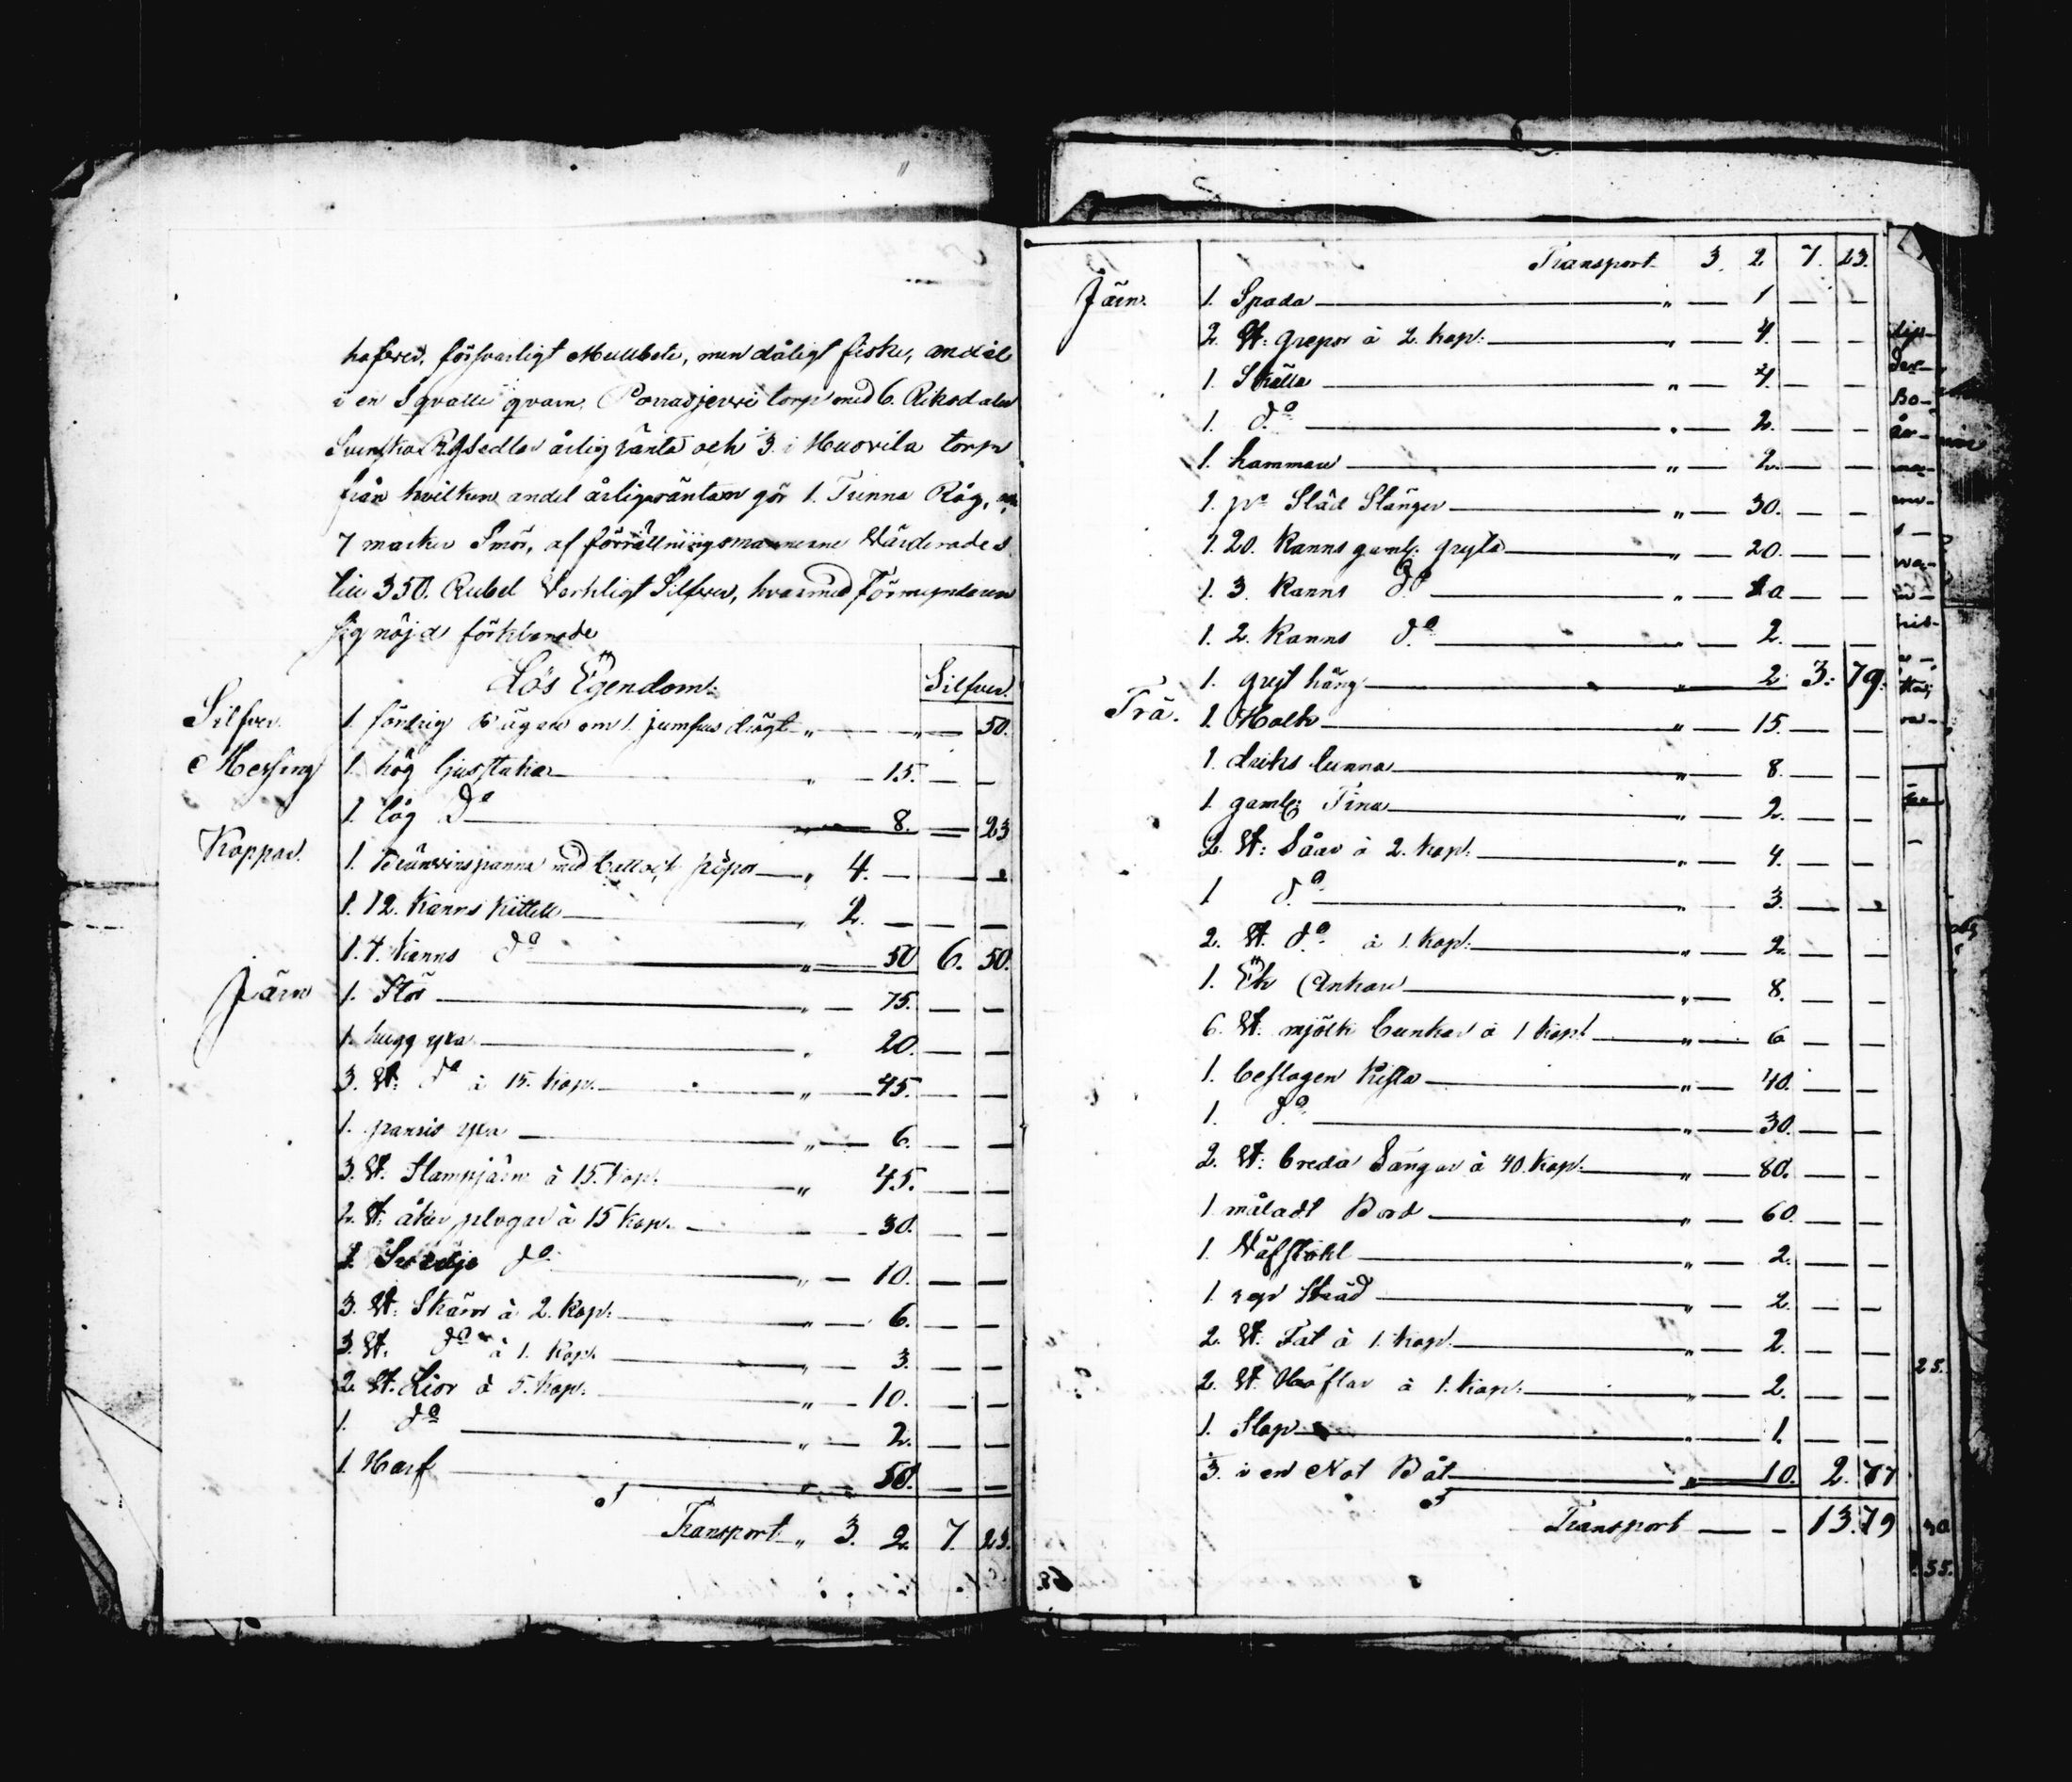 hafvet, försvarligt Mulbete, men dåligt fiske, andel
i en Sqvalte qvarn. Porrasjerwi torp med 6. Riksdaler
Svenska Rgsedlar årlig ränta och 3 i Huovila torp
från hvilken andel årligeräntan gör 1. Tunna Råg,
7 marker Smör, af förrättningsmannerne Värderades
till 350. Rubel Verkligt Silfver, hvarmed Förmyndaren
sig nöjd förklarade
Lös Egendom: Silfver.
Silfver. 1. om 1. jumfrus drägt „ — „ — 50.
Messing 1. hög ljusstaka „ — 15. — —
1. låg do 8. — 23
Koppar. 1. Bränvinspanna med hatt och pipor „ 4. — — —
1. 12. Kanns Kittel „ 2. — — —
1. 4. Kanns do „ 50 6. 50.
Järn 1. Stör „ — 75. — —
1. hugg yxa „ 20. — —
3. St: do à 15. Kop. „ — 45. — —
1. yxa „ — 6. — —
3. St. Stampjärn à 15. Kop. „ 45. — —
2. St. åker plogar à 15 Kop. — 30. — —
1. Svedje do „ — 10. — —
3. St. Skäror à 2. Kop. „ — 6. — —
3. St. do à 1. Kop. „ — 3. — —
2. St. Liar à 5. Kop. „ — 10. — —
1. do „ — 2. — —
1. Harf „ — 50. — —
Transport „ 3. 2. 7. 23.
Transport 3. 2 7. 23.
Järn. 1. Spada „ — 1 — —
2. St: grepor à 2. Kop: „ — 4. — —
1. Skälla „ — 4. — —
1. do „ — 2. — —
1. hammare „ — 2. — —
1. pr Städ Stänger „ — 30. — —
1. 20. Kanns gaml: gryta „ — 20. — —
1. 3. Kanns do „ — 10 — —
1. 2. Kanns do „ — 2. — —
1. gryt häng „ 2 3: 79.
Trä. 1. Holk „ — 15. — —
1. driks tunna „ — 8. — —
1. gaml: Tina „ — 2. — —
2. St: Såar à 2. Kop: „ — 4. — —
1 do „ — 3. — —
2. St. do à 1. Kop: „ — 2. — —
1. Ek Ankare „ — 8. — —
6. St: mjölk bunkar à 1 Kop: „ — 6 — —
1. beslagen Kista „ — 40. — —
1. do „ — 30. — —
2. St: breda Sängar à 40. Kop. „ — 80. — —
1 måladt Bord „ — 60 — —
1. Väfstohl „ — 2. — —
1. „ — 2. — —
2. St. Fat à 1. Kop. „ — 2. — —
2. St. à 1. Kop. „ — 2. — —
1. Stop „ — 1. — —
3. i en Not Båt „ 10. 2. 77
Transport — — 13. 79
25.
30
55.